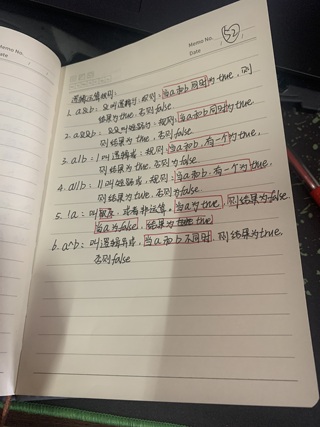 Memo No.
Date
Memo No. 52
Date
逻辑运算规则:
1. a&b: &叫逻辑与, 规则: 当a和b同时为true, 则
结果为true, 否则false.
2. a&&b: &&叫短路与, 规则: 当a和b同时为true,
则结果为true, 否则false.
3. a|b: |叫逻辑或, 规则: 当a和b, 有一个为true,
则结果为true, 否则为false.
4. a||b: ||叫短路或, 规则: 当a和b, 有一个为true,
则结果为true, 否则false
5. !a: 叫取反, 或者非运算。当a为true, 则结果为false
当a为false, 结果为true
6. a^b: 叫逻辑异或, 当a和b不同时, 则结果为true,
否则false